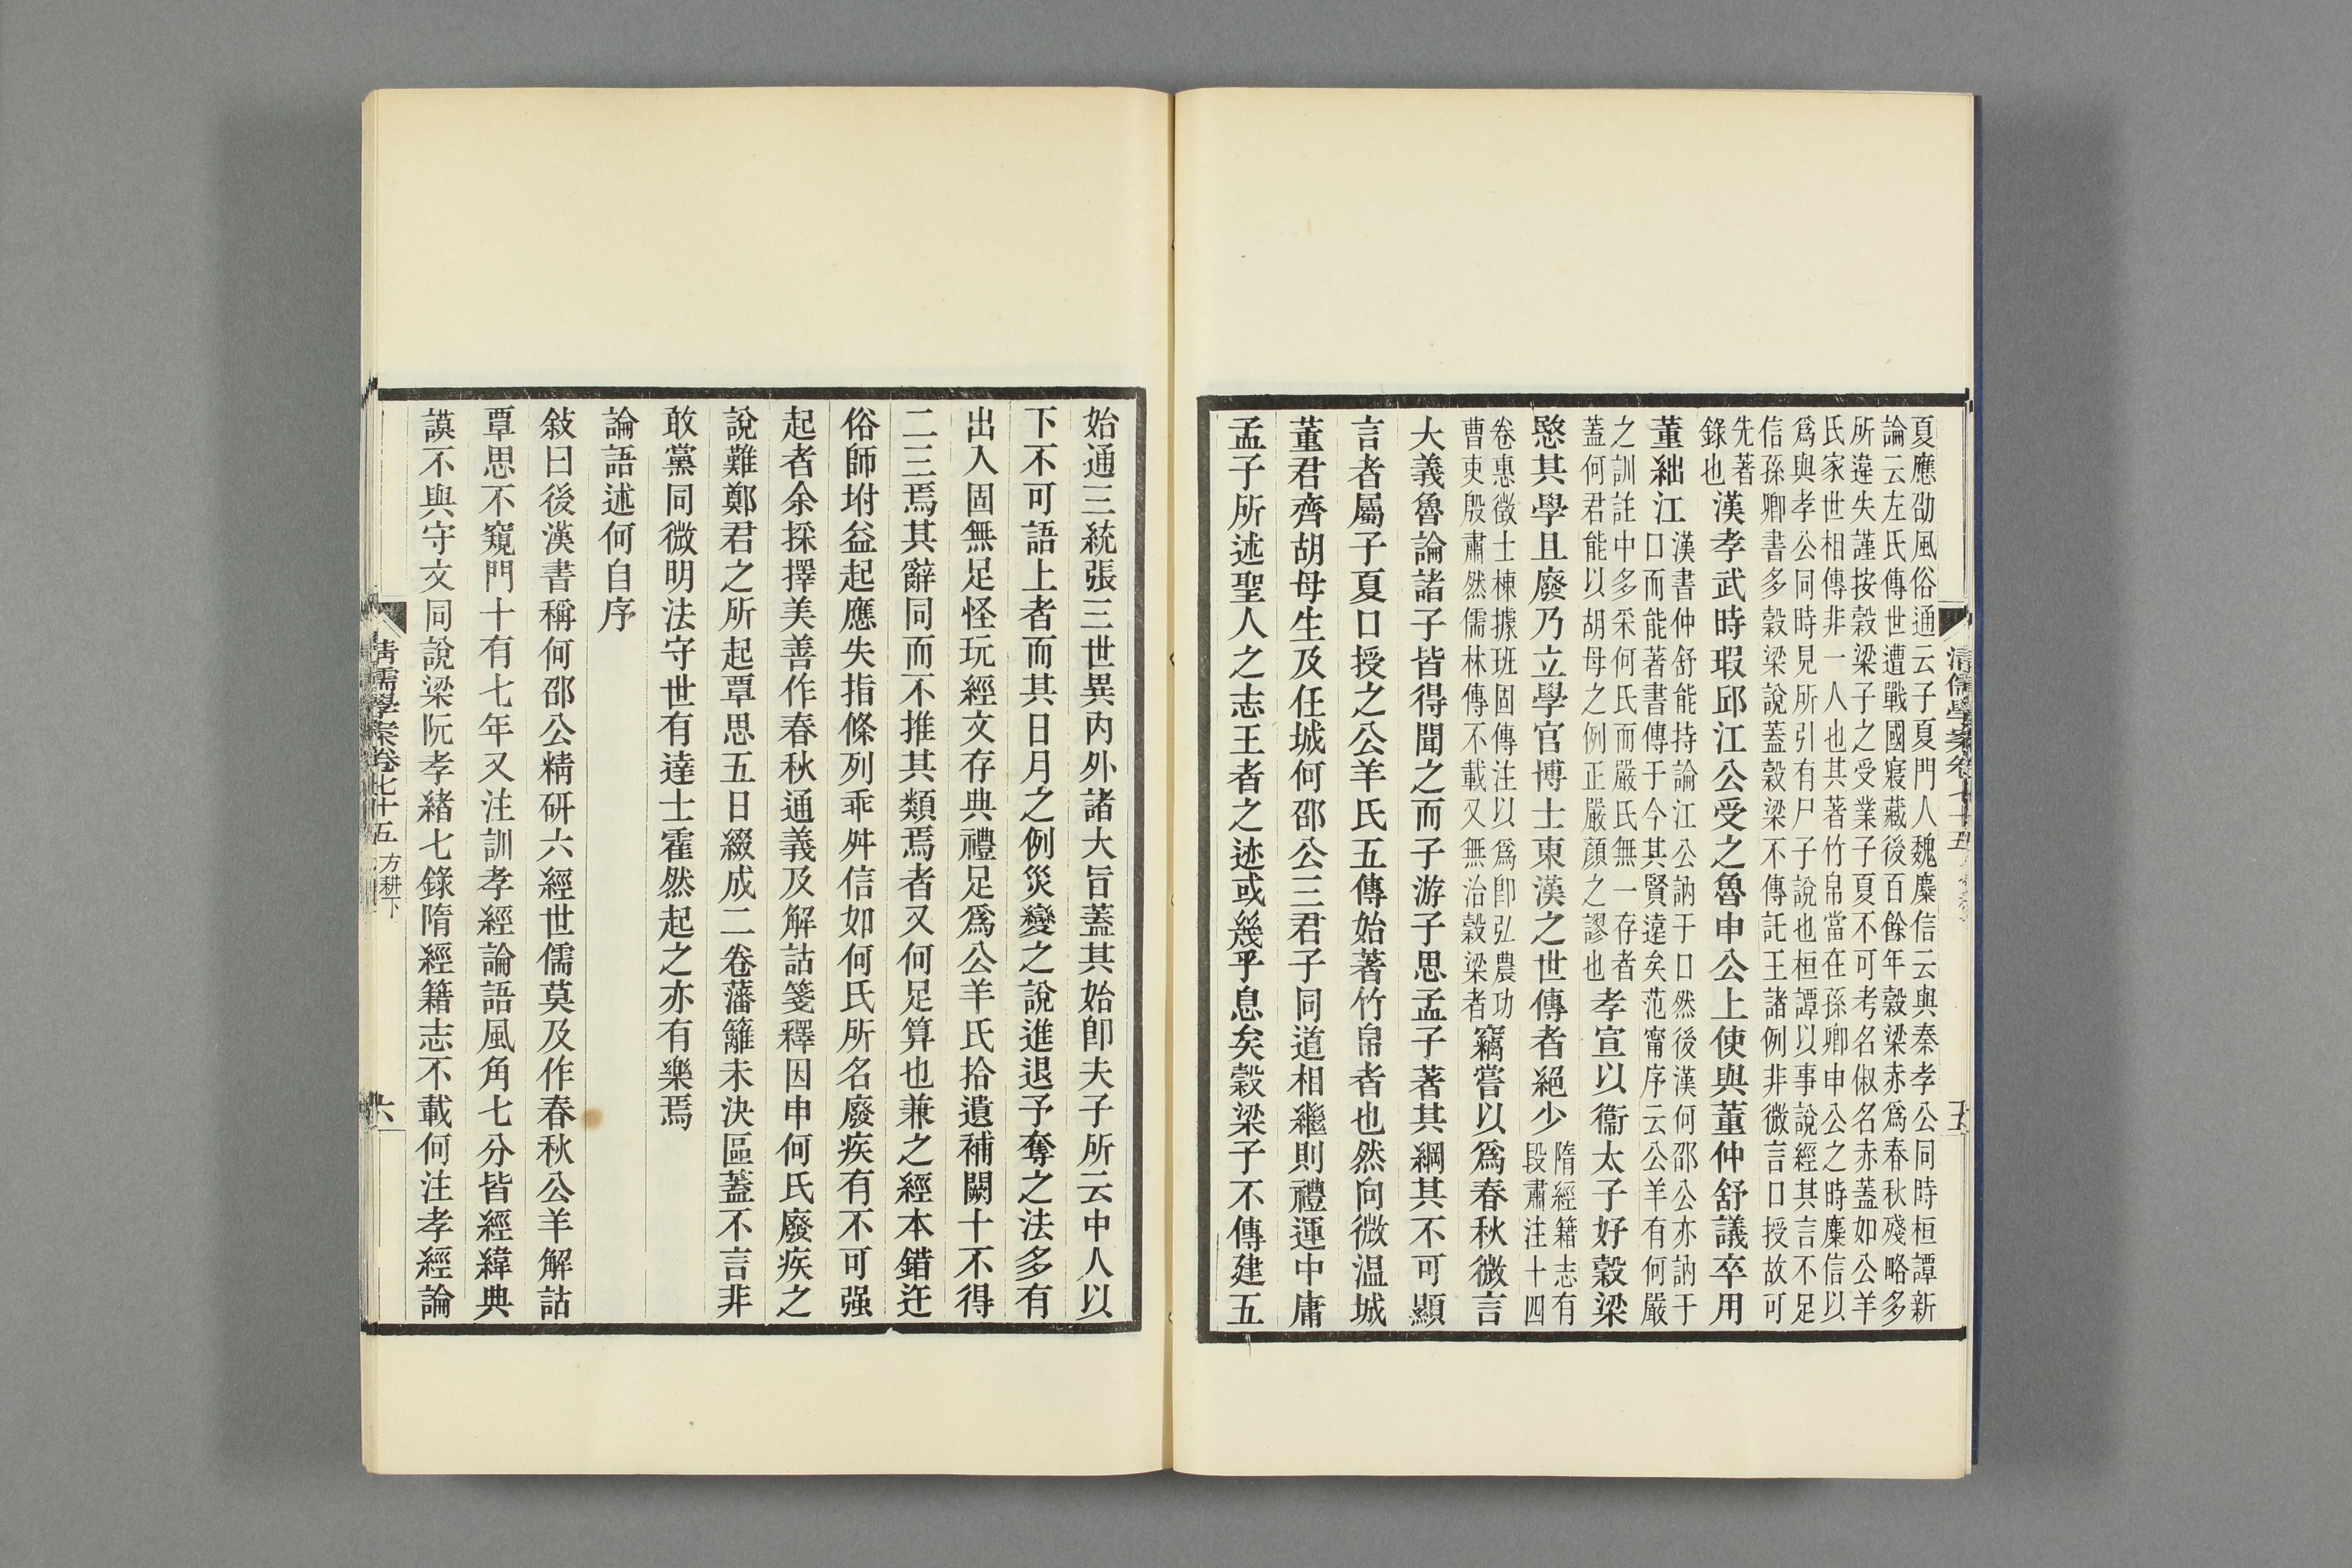 夏應劭風俗通云子夏門人魏麋信云與秦孝公同時桓譚新
論云左氏傳世遭戰國寢藏後百餘年穀梁赤爲春秋殘略多
所違失謹按穀梁子之受業子夏不可考名俶名赤蓋如公羊
氏家世相傳非一人也其著竹帛當在孫卿申公之時麋信以
爲與孝公同時見所引有尸子說也桓譚以事說經其言不足
信孫卿書多穀梁說蓋穀梁不傳託王諸例非微言口授故可
先著
錄也
漢孝武時瑕邱江公受之魯申公上使與董仲舒議卒用
董絀江
漢書仲舒能持論江公訥于口然後漢何邵公亦訥于
口而能著書傳于今其賢遠矣范甯序云公羊有何嚴
之訓註中多采何氏而嚴氏無一存者
蓋何君能以胡母之例正嚴顏之謬也
孝宣以衞太子好穀梁
愍其學且廢乃立學官博士東漢之世傳者絕少
隋經籍志有
段肅注十四
卷惠徵士棟據班固傳注以爲卽弘農功
曹吏殷肅然儒林傳不載又無治穀梁者
竊嘗以爲春秋微言
大義魯論諸子皆得聞之而子游子思孟子著其綱其不可顯
言者屬子夏口授之公羊氏五傳始著竹帛者也然向微温城
董君齊胡母生及任城何邵公三君子同道相繼則禮運中庸
孟子所述聖人之志王者之迹或幾乎息矣穀梁子不傳建五
始通三統張三世異內外諸大旨蓋其始卽夫子所云中人以
下不可語上者而其日月之例災變之說進退予奪之法多有
出入固無足怪玩經文存典禮足爲公羊氏拾遺補闕十不得
二三焉其辭同而不推其類焉者又何足算也兼之經本錯迕
俗師坿益起應失指條列乖舛信如何氏所名廢疾有不可强
起者余採擇美善作春秋通義及解詁箋釋因申何氏廢疾之
說難鄭君之所起覃思五日綴成二卷藩籬未決區蓋不言非
敢黨同微明法守世有達士霍然起之亦有樂焉
論語述何自序
敍曰後漢書稱何邵公精研六經世儒莫及作春秋公羊解詁
覃思不窺門十有七年又注訓孝經論語風角七分皆經緯典
謨不與守文同說梁阮孝緒七錄隋經籍志不載何注孝經論
清儒學案卷七十五
方耕下
六